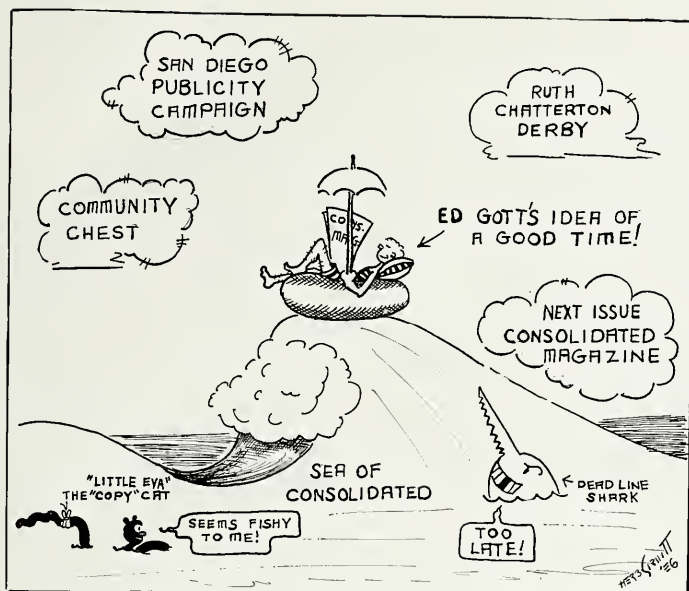 SAN DIEGO
PUBLICITY
CAMPAIGN
RUTH
CHATTERTON
DERBY
COMMUNITY
CHEST
CONS.
MAG.
ED GOTT'S IDEA OF
A GOOD TIME!
NEXT ISSUE
CONSOLIDATED
MAGAZINE
SEA OF
CONSOLIDATED
"LITTLE EVA"
THE "COPY" CAT
SEEMS FISHY
TO ME!
DEAD LINE
SHARK
TOO
LATE!